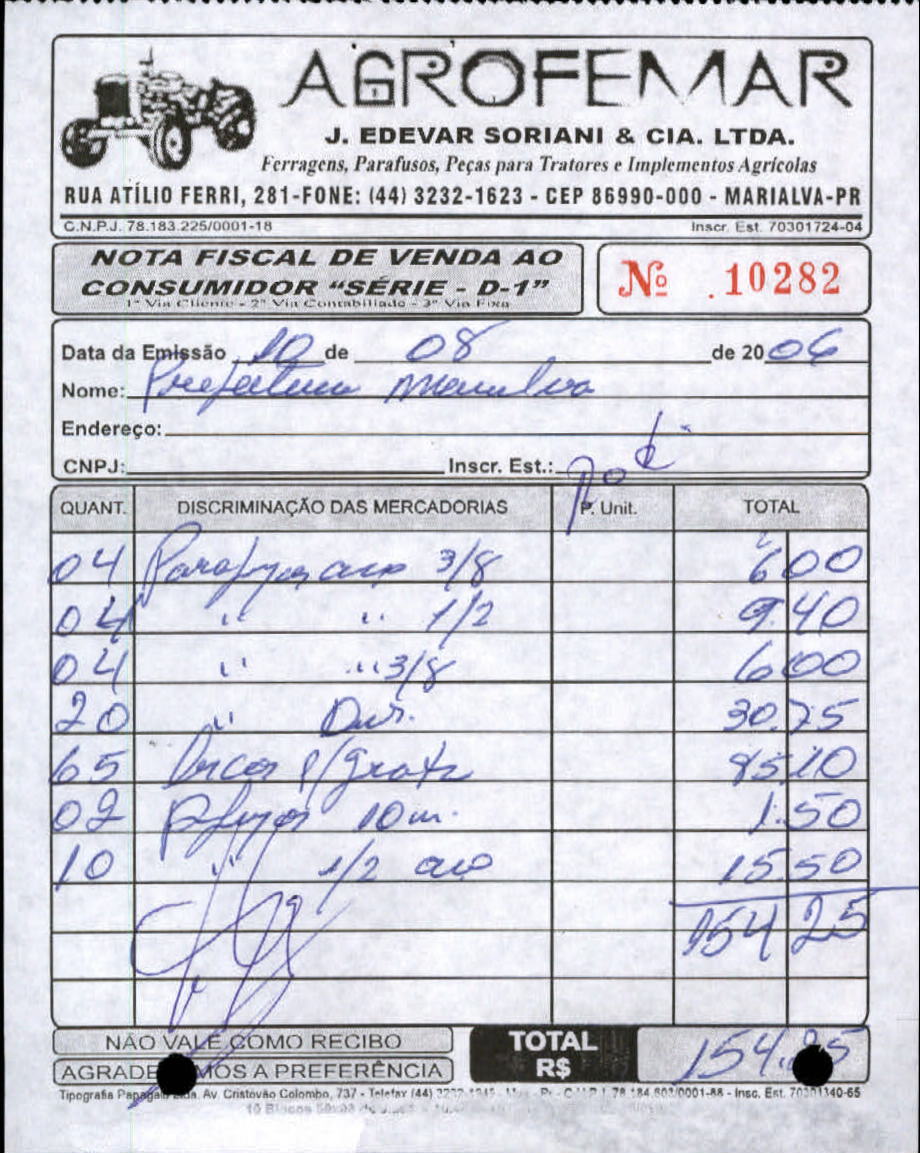 AGROFEMAR
J. EDEVAR SORIANI & CIA. LTDA.
Ferragens, Parafusos, Peças para Tratores e Implementos Agrícolas
RUA ATÍLIO FERRI, 281-FONE: (44) 3232-1623 - CEP 86990-000 - MARIALVA-PR
C.N.P.J. 78.183.225/0001-18 Inscr. Est. 70301724-04
NOTA FISCAL DE VENDA AO
CONSUMIDOR "SÉRIE - D-1"
1ª Via Cliente - 2ª Via Contabilidade - 3ª Via Fixa
Nº 10282
Data da Emissão 10 de 08 de 2006
Nome: Prefeitura Marialva
Endereço:
CNPJ: Inscr. Est.:
QUANT. DISCRIMINAÇÃO DAS MERCADORIAS P. Unit. TOTAL
04 Parafusos aço 3/8 6 00
04 " " 1/2 9.40
04 " " 3/8 6 00
20 " 30.75
65 p/ 85.10
02 10 m. 1.50
10 " 1/2 aço 15.50
154 25
NÃO VALE COMO RECIBO
AGRADECEMOS A PREFERÊNCIA
TOTAL
R$ 154.25
Tipografia Papagaio Ltda. Av. Cristóvão Colombo, 737 - Telefax (44) - 78.184.603/0001-88 - Insc. Est. 70301340-65